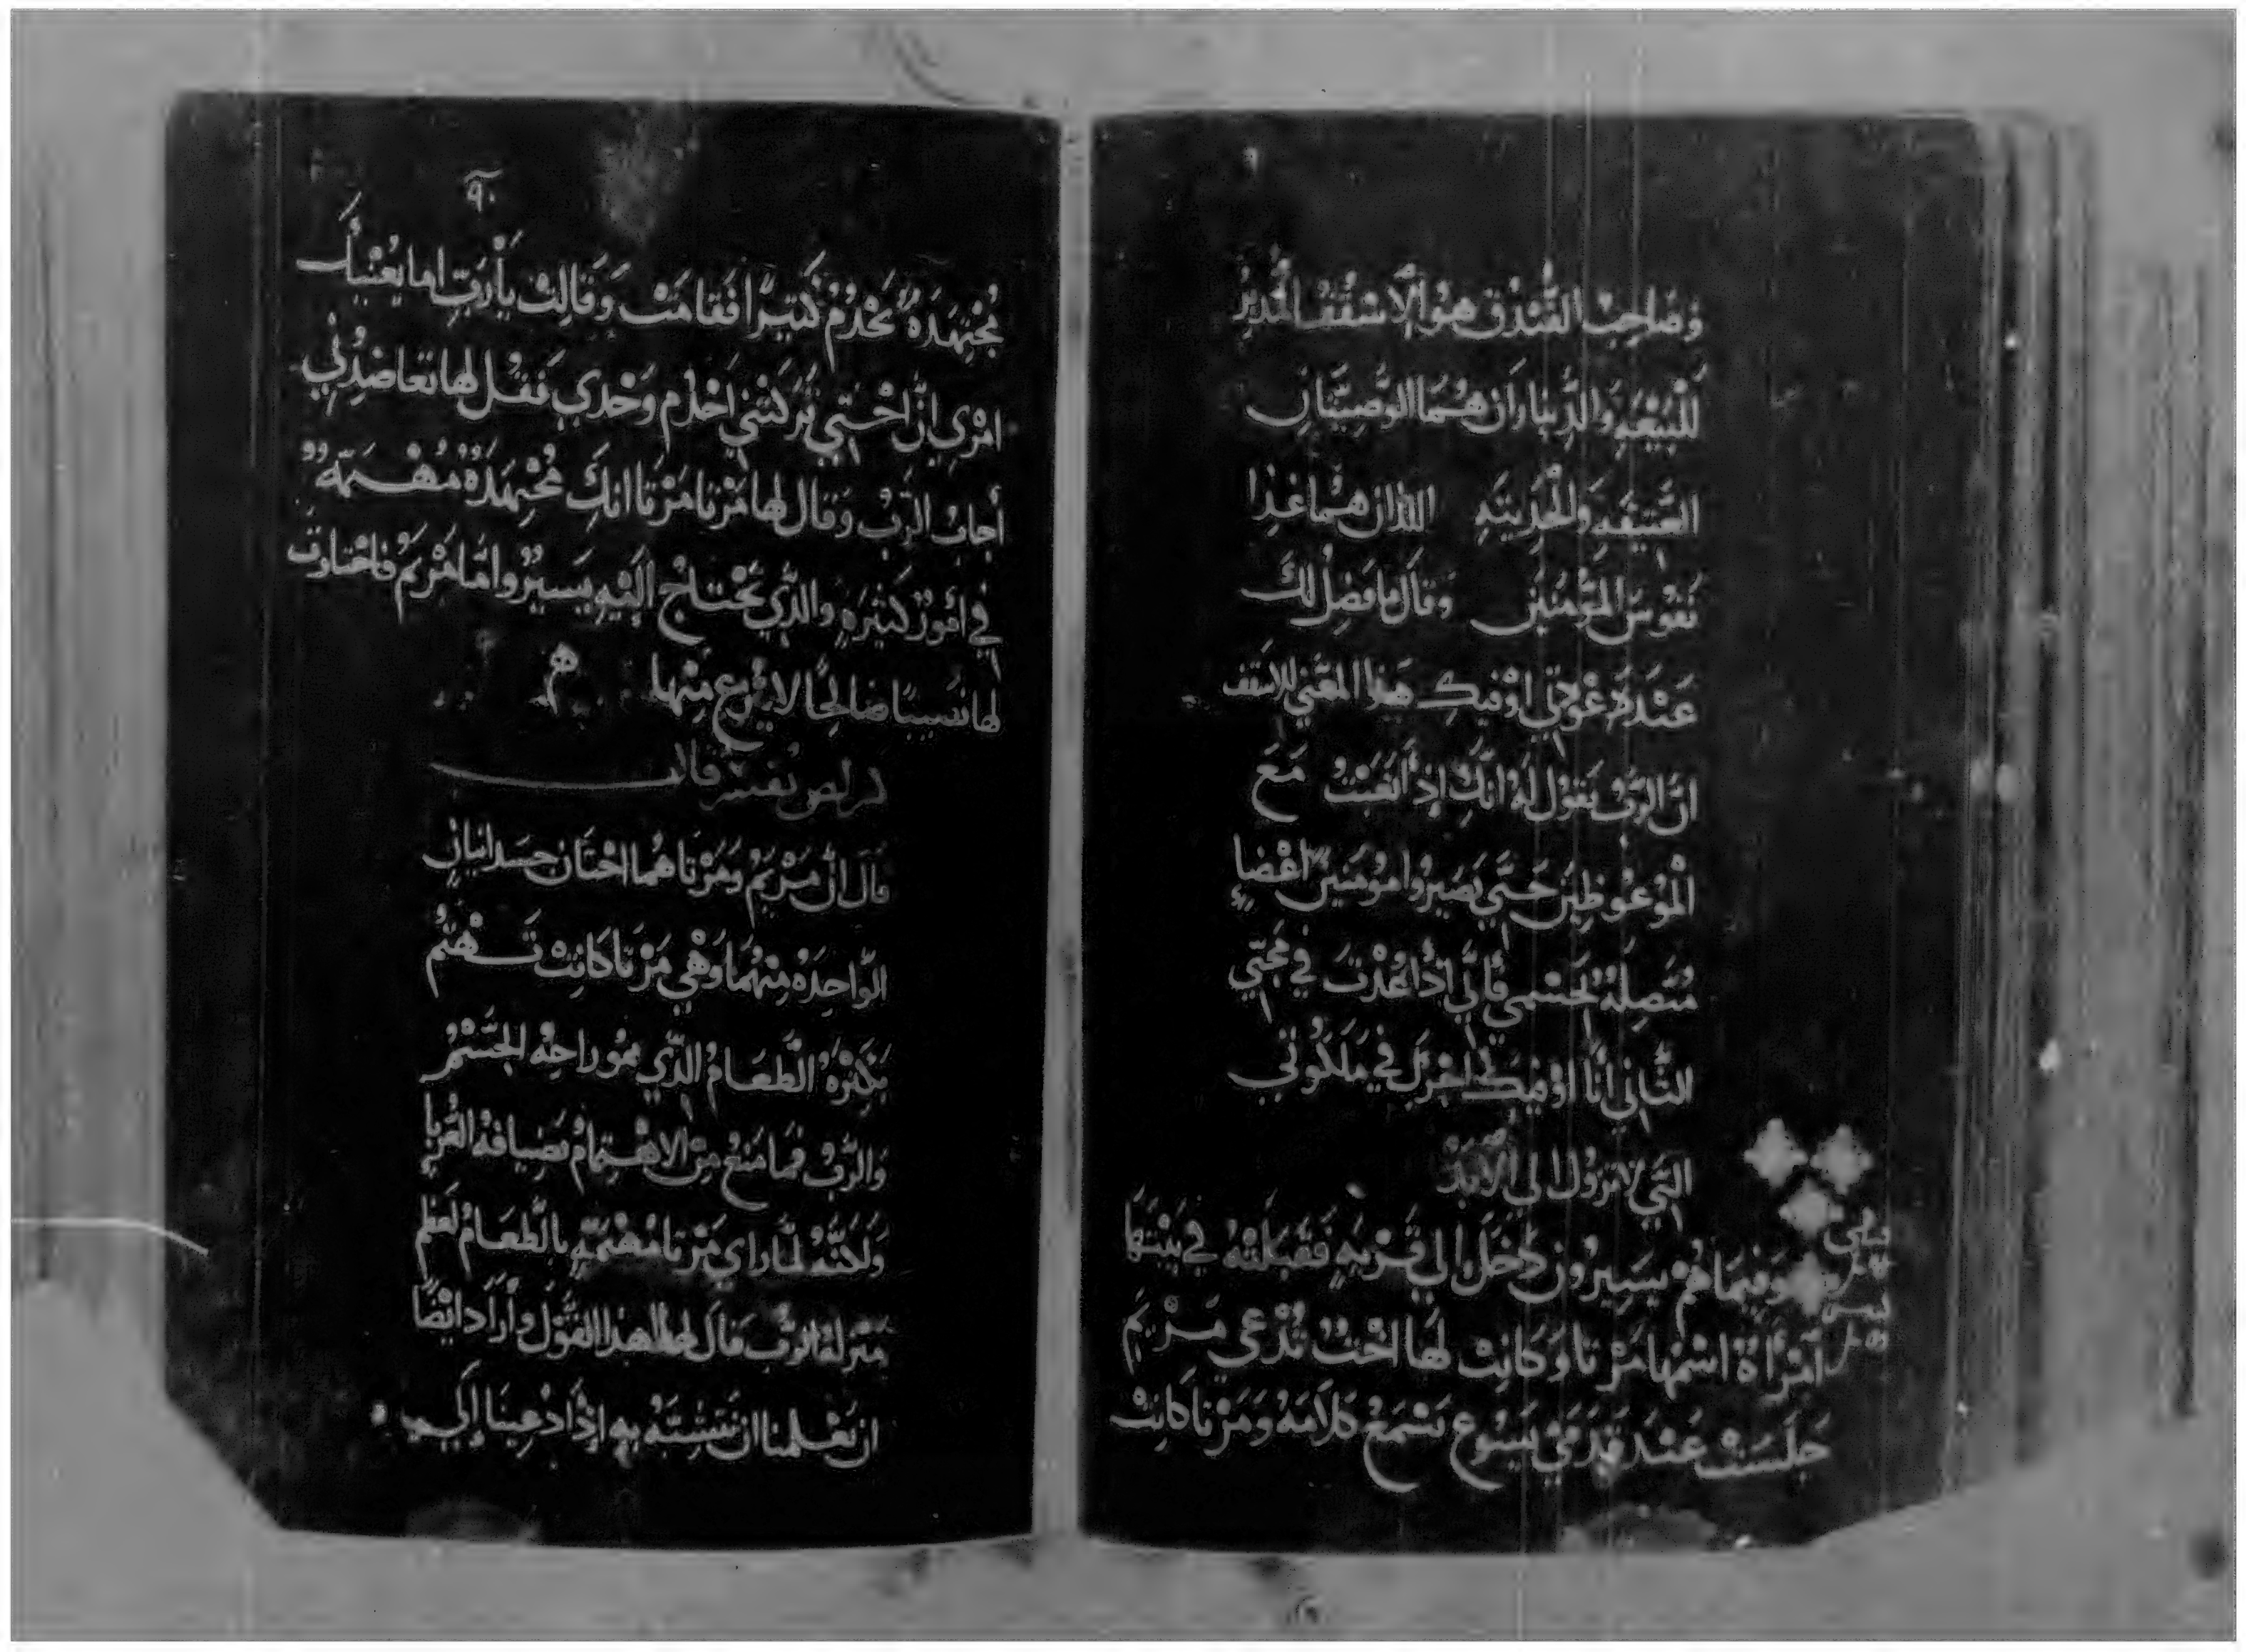 وَصَاحِبُ الفُنْدُق هُوَ الاسْقُفُ المُدَبِّرُ
لِلْبَيْعَهِ وَالدِّينَارَان هُمَا الوَصِيَّتَانِ
العَتِيقَه وَالحَدِيثَهِ اللذان هُمَا غِذا
نفُوسَ المُؤْمِنِين وَقَالَ مَا فَضِلَ لَكَ
عَنْدَ عَوْدَتِي اوْفيكِ هَذا المَعْنى للاسقف
انَّ الرَّبُّ يَقُول لَهُ انَّكَ إِذ اَتعَبْتَ مَعَ
المَوْعُوظِينَ حَتَّي يَصِيرُوا مُومِنينَ اعْضا
مُتَّصِلَةٌ بجَسْمي فَانِّي اذا عُدْتُ فِي مَجيّي
الثَّانِي انَا اوْفيكَ اجْرَكَ فِي مَلَكُوتِي
التِّي لاتزول الي الابَدْ
وَفِيمَا هُمْ يَسِيرُونَ دَخَلَ الي قَرْيَهٍ فَقَبِلَتْهُ فِي بَيْتهَا
امْرَأَةٌ اسْمُهَا مَرْتَا وَكَانِتْ لَهَا اخْتٌ تُدْعي مَرْيَم
جَلَسَتْ عَنْدَ قَدَمَيْ يَسُوع تَسْمَعُ كَلاَمَهُ وَمَرْتَا كَانِتْ
٩٠
مُجْتهِدَهٌ تَخْدُمُ كَتِيرًا فَقامَتْ وَقَالِتْ يَارَبّ اما يُعْنِيكَ
امْري انَّ اخْتِي تَرَكَتْنِي اخْدُم وَحْدي فَقُل لها تعاضِدْنِي
أجابَ الرَّبُ وَقال لها مَرْتا مَرْتا انكِ مُجْتهِدَهٌ مُهْتمَّهٌ
فِي امُورٌ كَثيرَهٍ والذِّي يَحْتاجُ الَيْهِ يَسيرٌ وامَّا مَرْيَمُ فاخْتارَتْ
لها نصيبًا صَالحًا لا يُنْزع مِنْها
تفسير قال
قالَ انَّ مَرْيَمُ وَمَرْتَا هُما اخْتَان جسَدانيانِ
الوَاحِدَهُ مِنْهُما وَهْي مَرْتَا كَانِتْ تَهْتَمُ
بِكثرَهُ الطَّعَامُ الذِّي هُوَ رَاحِهْ الجَسْمُ
وَالرَّبُ فمَا مَنَعُ مِنْ الاهْتِمَامُ بِضِيَافَهْ الغُرَبَا
وَلَكنَّهُ لمَّا رَاي مَرْتا مُهْتمَّهٍ بالطَّعَامُ لعَظم
مَنْزلهْ الرَّب قَالَ لها هَذا القَوْل وارَادَ ايْضًا
ان يُعَلمنا ان نَتَشبَّهُ بِهِ إِذَا دُعِينَا إِلَي